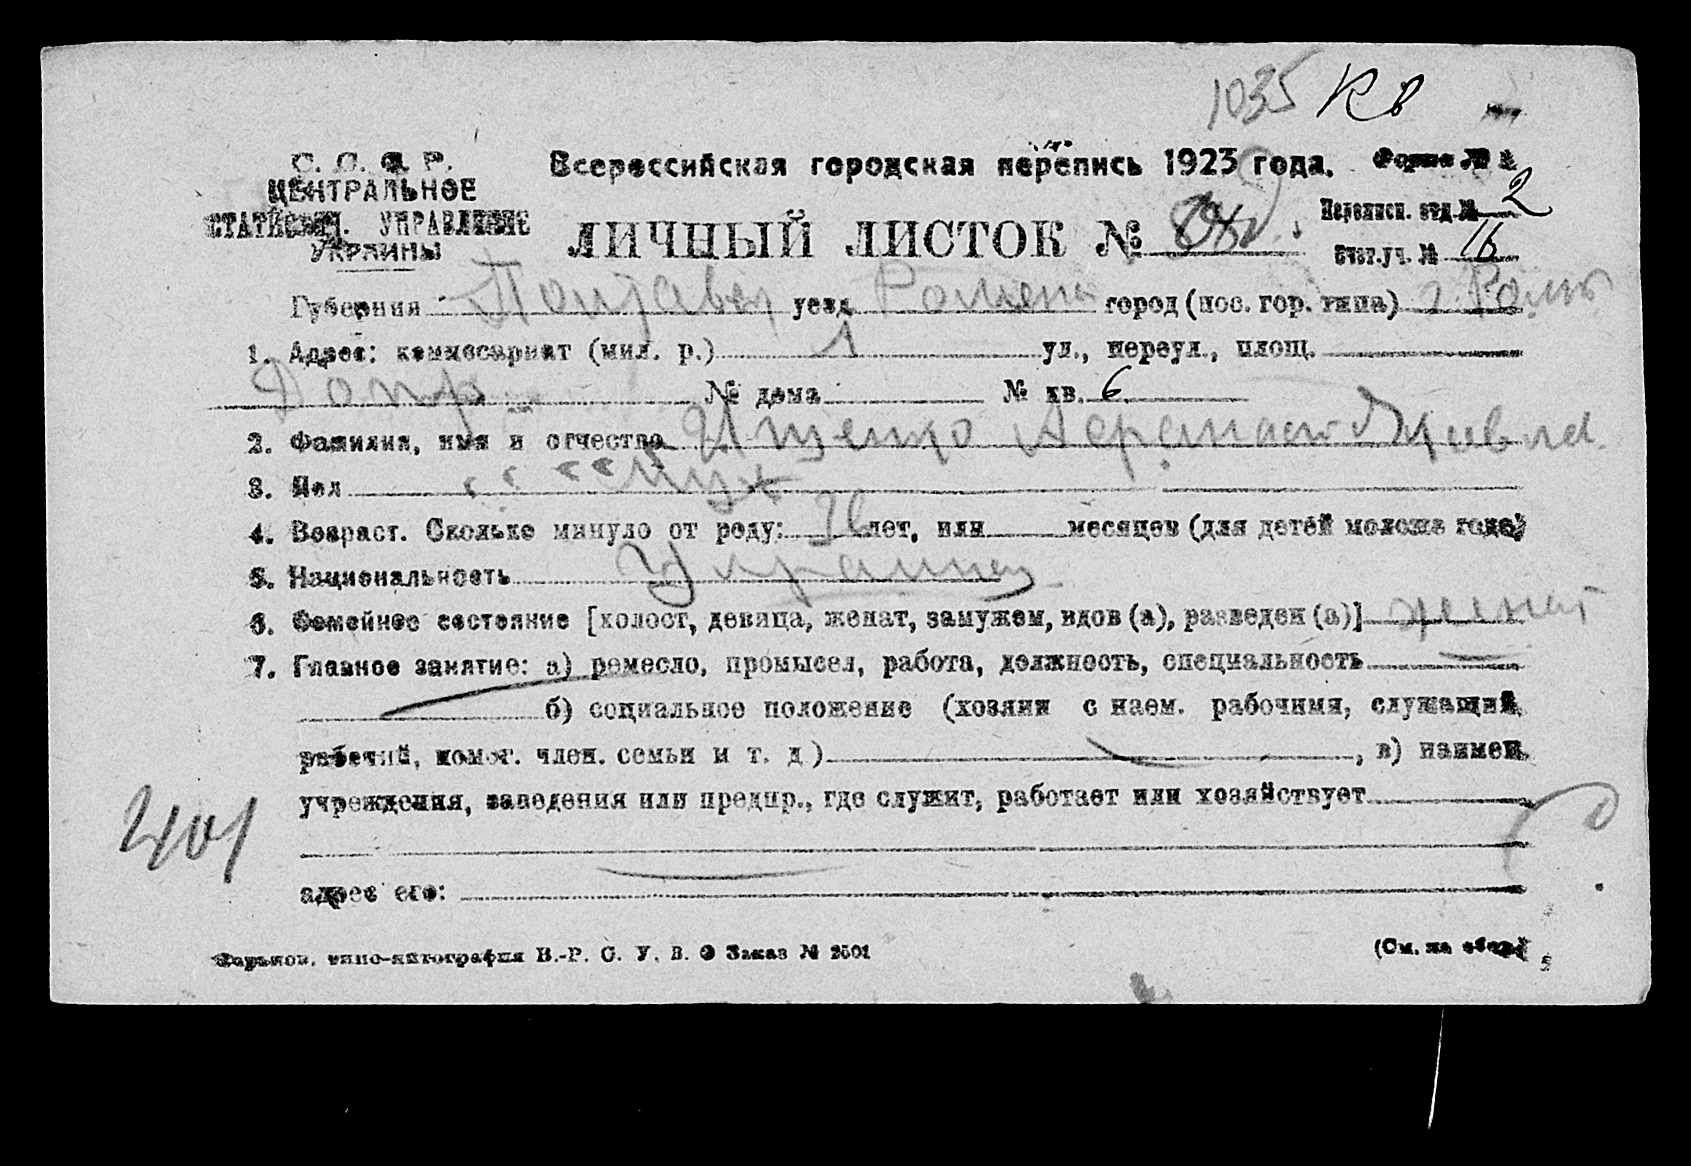 1035 Кв
С. С. С. Р. Всероссийская городская перепись 1923 года. Форма №
ЦЕНТРАЛЬНОЕ
СТАТИСТИЧ. УПРАВЛЕНИЕ
УКРАИНЫ
ЛИЧНЫЙ ЛИСТОК №
Переписн. отд. № 2
Счет. уч. № 16
Губерния Полтавск уезд Роменск город (пос. гор. типа) г. Ромн
1. Адрес: комиссариат (мил. р.) 1 ул., переул., площ.
Допр № дома № кв. 6
2. Фамилия, имя и отчество Ищенко Павла
3. Пол Муж
4. Возраст. Сколько минуло от роду: 26 лет, или месяцев (для детей моложе года)
5. Национальность Украинец
6. Семейное состояние [холост, девица, женат, замужем, вдов (а), разведен (а)] женат
7. Главное занятие: а) ремесло, промысел, работа, должность, специальность
б) социальное положение (хозяин с наем. рабочими, служащий,
рабочий, помог. член. семьи и т. д ) , в) наимен.
учреждения, заведения или предпр., где служит, работает или хозяйствует
401
адрес его:
Харьков. типо-литография В.-Р. С. У. В. О Заказ № 2501 (См. на обор.)